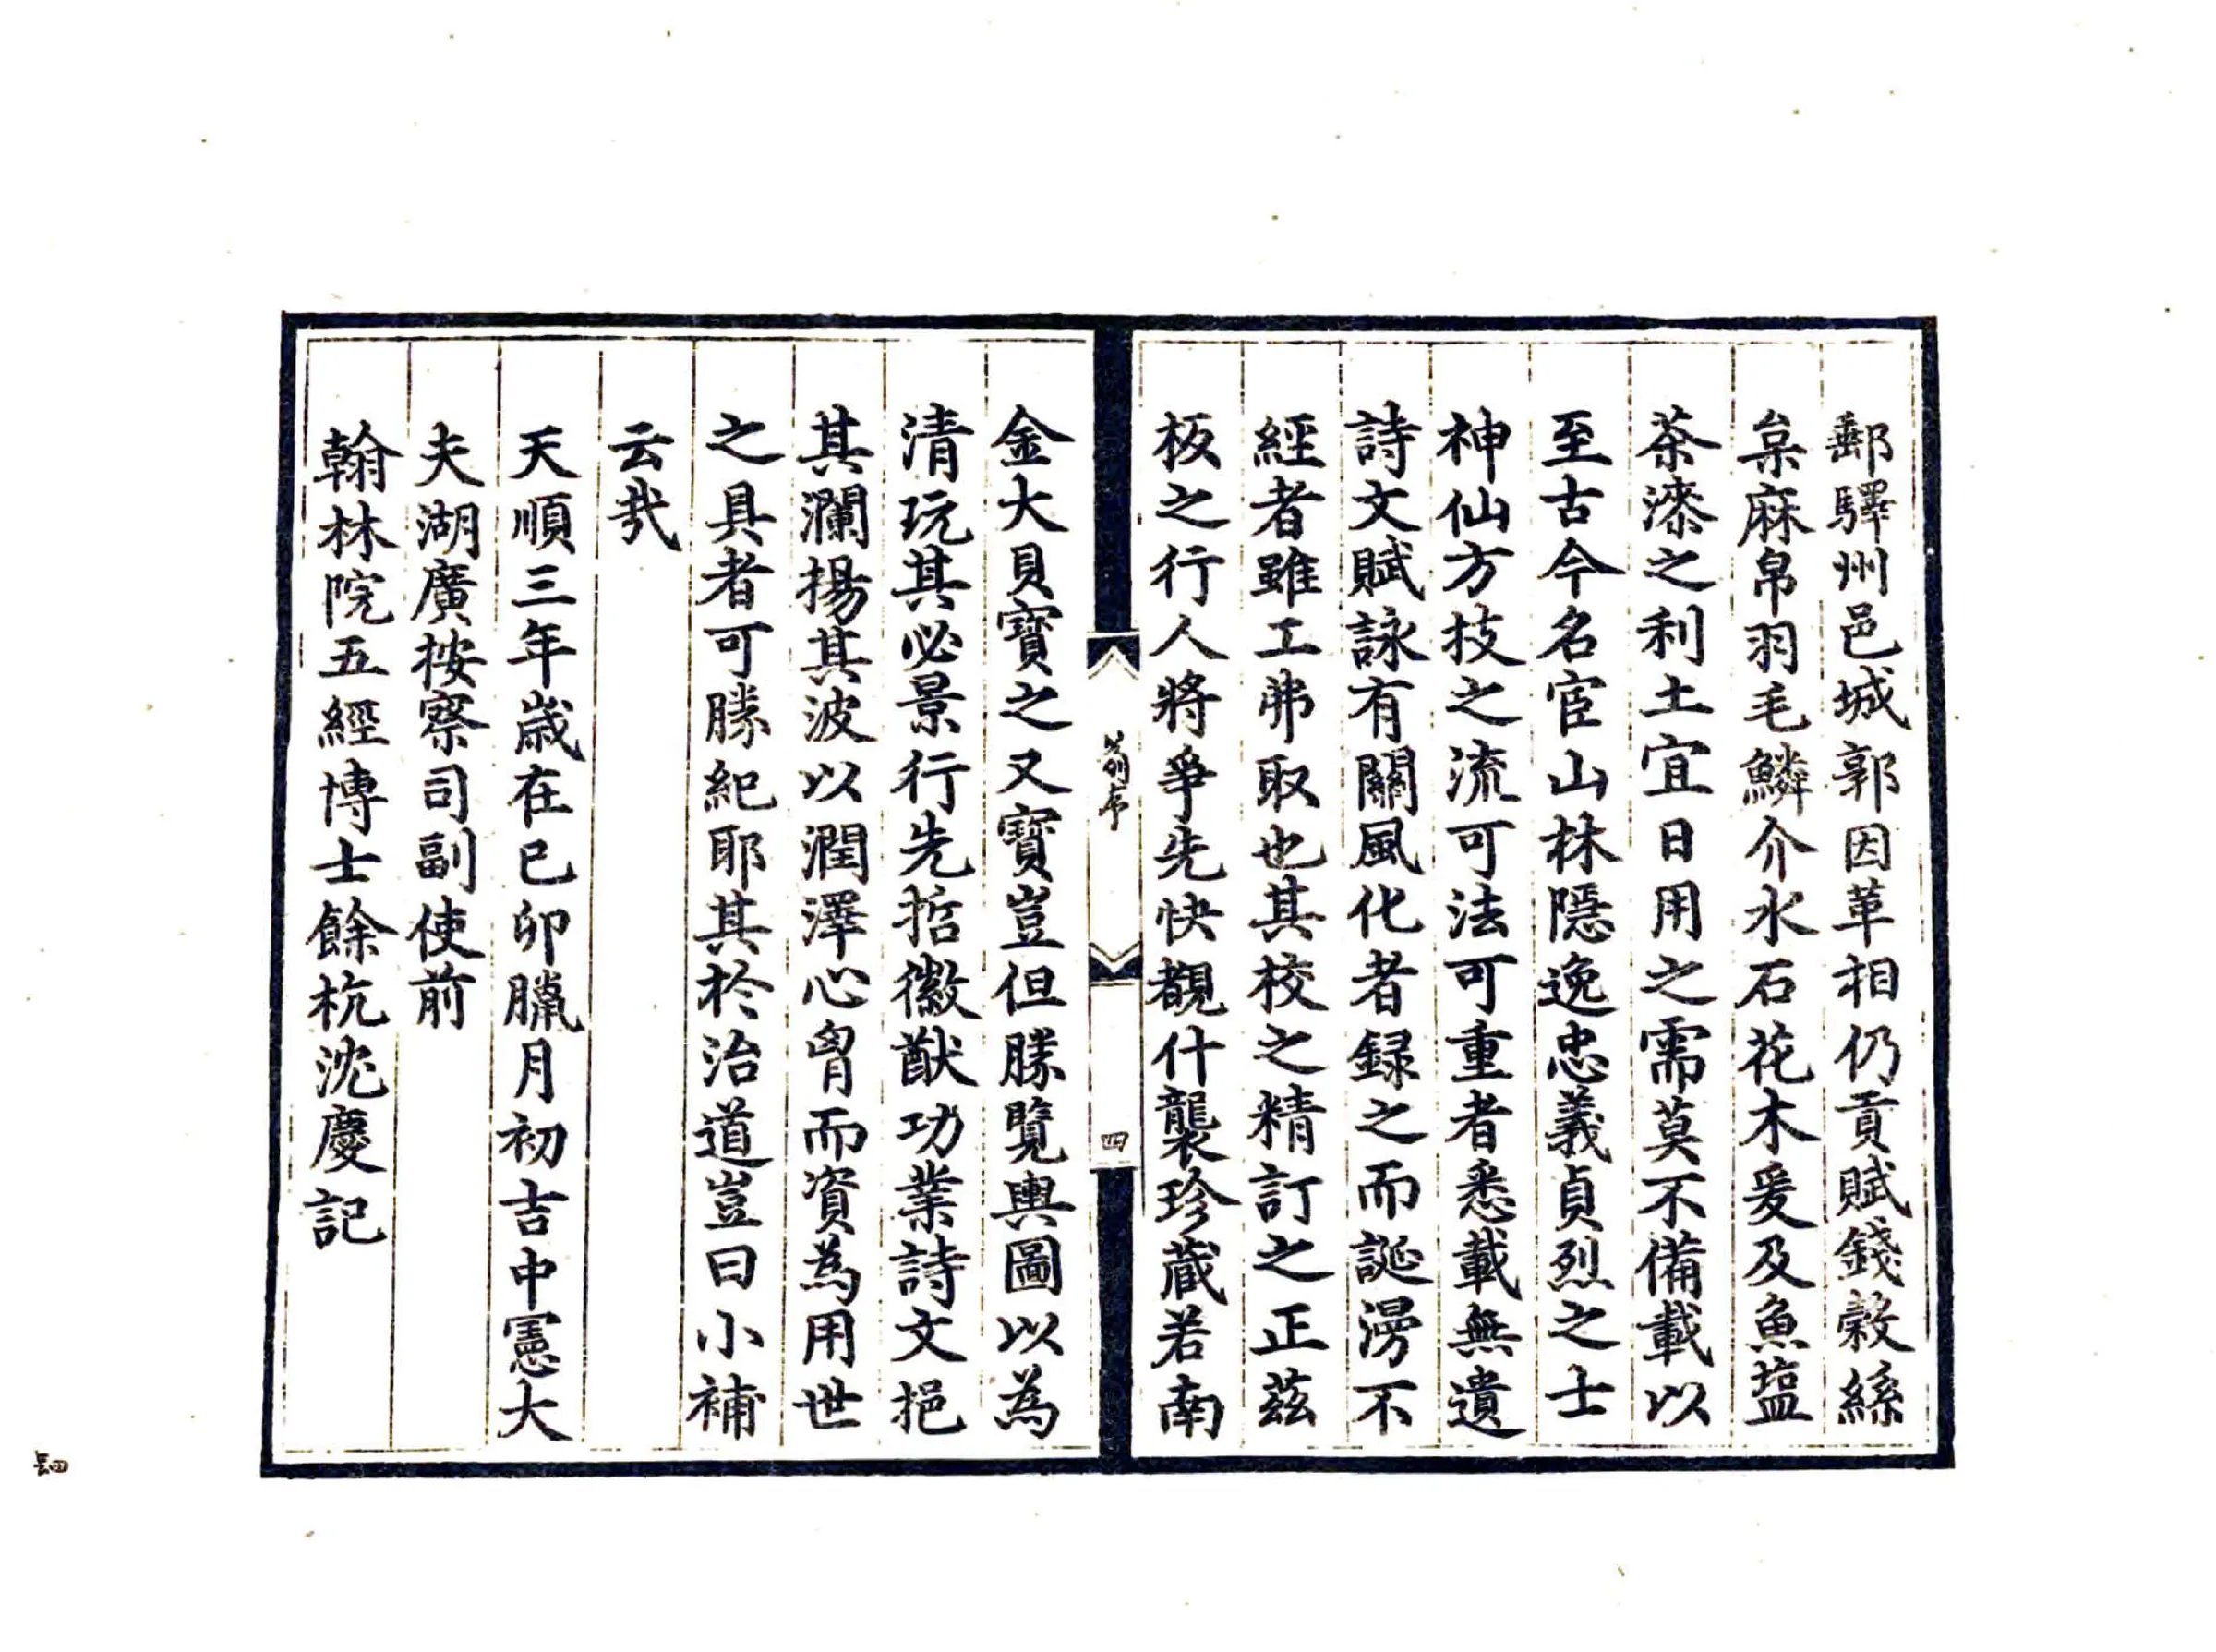 郵驛州邑城郭因革相仍貢賦錢穀絲
枲麻帛羽毛鱗介水石花木爰及魚塩
茶漆之利土宜日用之需莫不備載以
至古今名宦山林隱逸忠義貞烈之士
神仙方技之流可法可重者悉載無遺
詩文賦詠有關風化者録之而誕漫不
經者雖工弗取也其校之精訂之正茲
板之行人將爭先快覩什襲珍蔵若南
四
金大貝寶之又寶豈但勝覽輿圖以為
清玩其必景行先哲徽猷功業詩文挹
其瀾揚其波以潤澤心胷而資為用世
之具者可勝紀耶其於治道豈曰小補
云哉
天順三年歳在已卯臘月初吉中憲大
夫湖廣按察司副使前
翰林院五經博士餘杭沈慶記